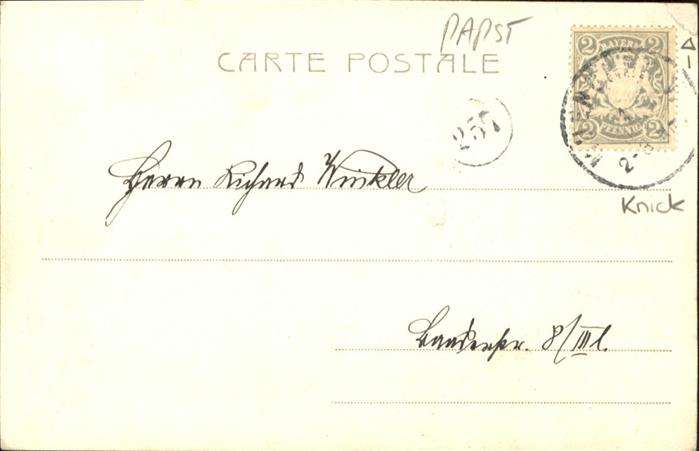 PAPST
CARTE POSTALE
2 BAYERN 2
2 PFENNIG 2
257
Knick
Herrn Richard Winkler
Baaderstr. 8/III l.